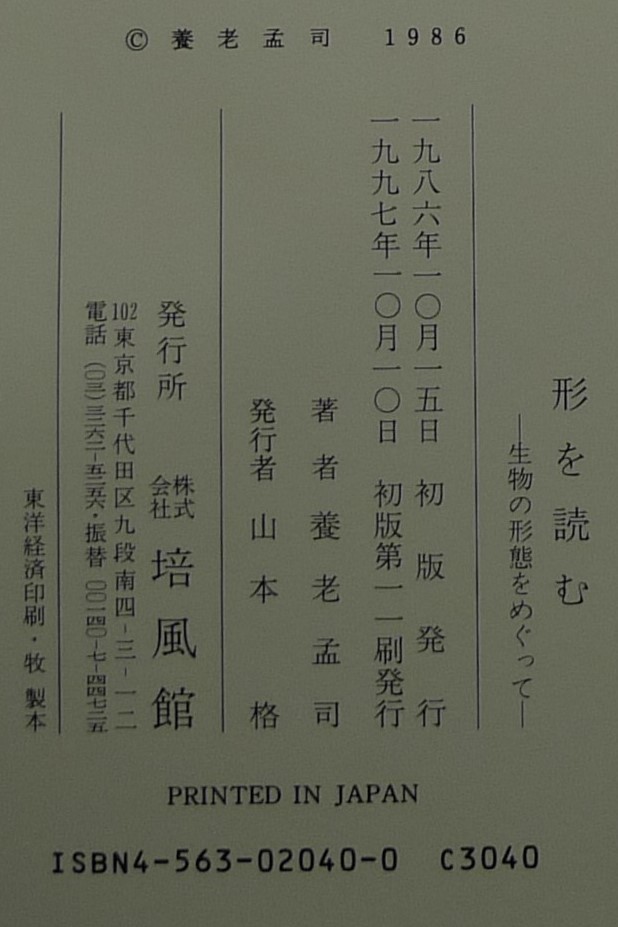 © 養老孟司 1986
形を読む
―生物の形態をめぐって―
一九八六年一〇月一五日 初版発行
一九九七年一〇月一〇日 初版第一一刷発行
著者 養老孟司
発行者 山本格
発行所 株式会社 培風館
102東京都千代田区九段南四-三-一二
電話(〇三)三二六二-五二五六・振替〇〇一四〇-七-四四七二五
東洋経済印刷・牧 製本
PRINTED IN JAPAN
ISBN4-563-02040-0 C3040